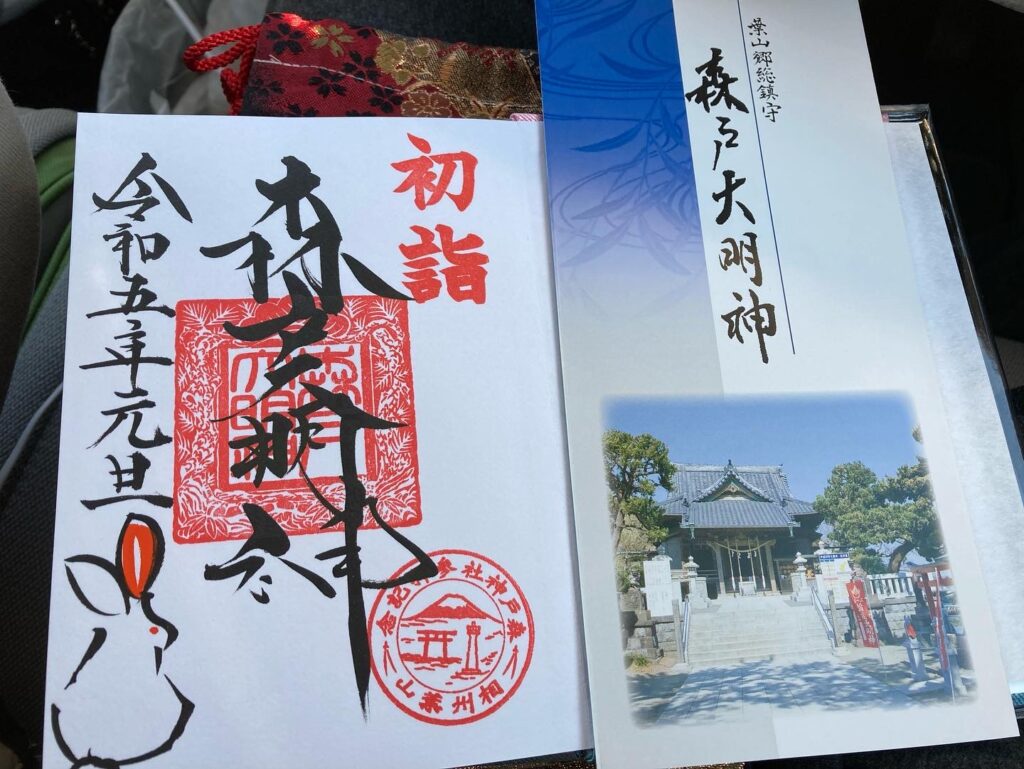 葉山郷総鎮守
森戸大明神
初詣
森戸大明神
令和五年元旦
森戸神社参拝記念
相州葉山